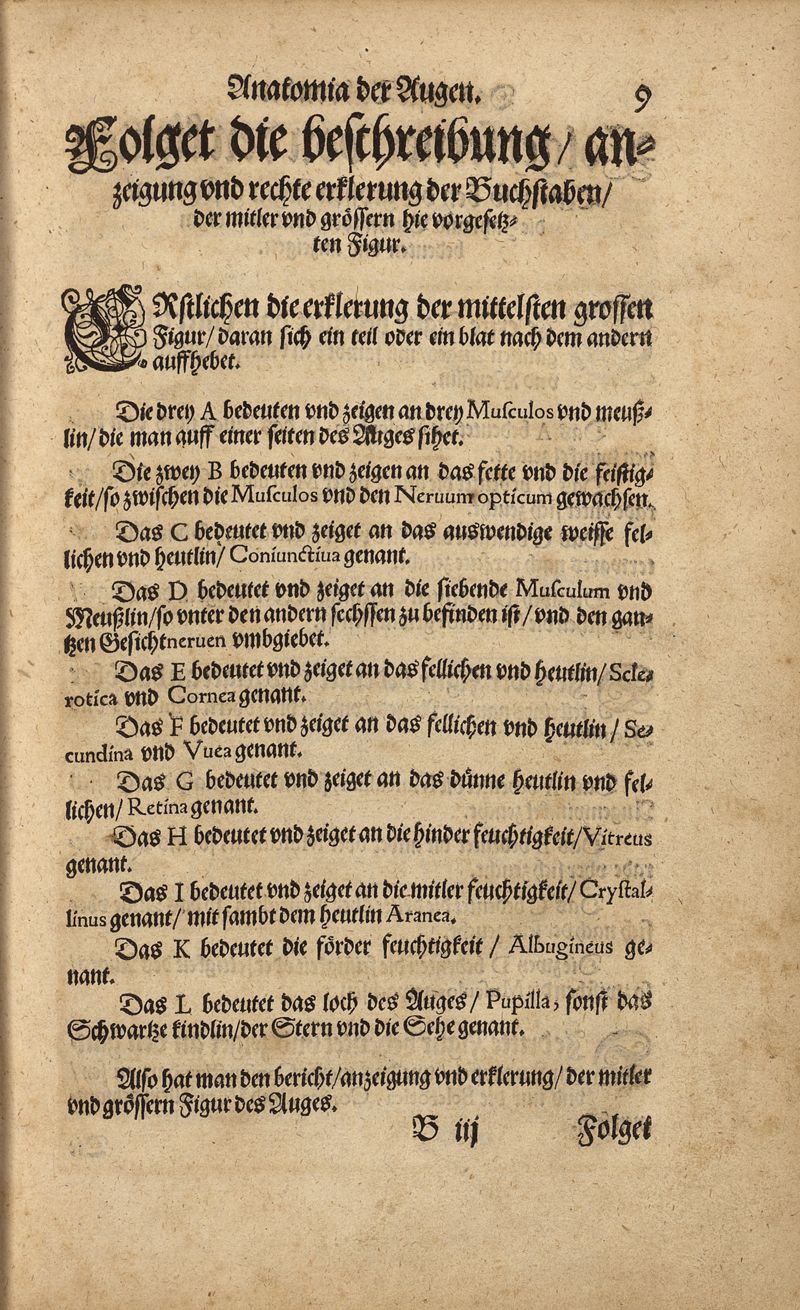 Anatomia der Augen. 9
Folget die beschreibung/ an⸗
zeigung vnd rechte erklerung der Buchstaben/
der mitler vnd grössern hie vorgesetz⸗
ten Figur.
ERstlichen die erklerung der mittelsten grossen
Figur/ daran sich ein teil oder ein blat nach dem andern
auffhebet.
Die drey A bedeuten vnd zeigen an drey Musculos vnd meuß⸗
lin/ die man auff einer seiten des Auges sihet.
Die zwey B bedeuten vnd zeigen an das fette vnd die feistig⸗
keit/ so zwischen die Musculos vnd den Neruum opticum gewachsen.
Das C bedeutet vnd zeiget an das auswendige weisse fel⸗
lichen vnd heutlin/ Coniunctiua genant.
Das D bedeutet vnd zeiget an die siebende Musculum vnd
Meußlin/ so vnter den andern sechssen zu befinden ist/ vnd den gan⸗
tzen Gesichtneruen vmbgiebet.
Das E bedeutet vnd zeiget an das fellichen vnd heutlin/ Scle⸗
rotica vnd Cornea genant.
Das F bedeutet vnd zeiget an das fellichen vnd heutlin/ Se⸗
cundina vnd Vuea genant.
Das G bedeutet vnd zeiget an das dünne heutlin vnd fel⸗
lichen/ Retina genant.
Das H bedeutet vnd zeiget an die hinder feuchtigkeit/ Vitreus
genant.
Das I bedeutet vnd zeiget an die mitler feuchtigkeit/ Crystal⸗
linus genant/ mit sambt dem heutlin Aranea.
Das K bedeutet die förder feuchtigkeit/ Albugineus ge⸗
nant.
Das L bedeutet das loch des Auges/ Pupilla, sonst das
Schwartze kindlin/ der Stern vnd die Sehe genant.
Also hat man den bericht/ anzeigung vnd erklerung/ der mitler
vnd grössern Figur des Auges.
B iij Folget